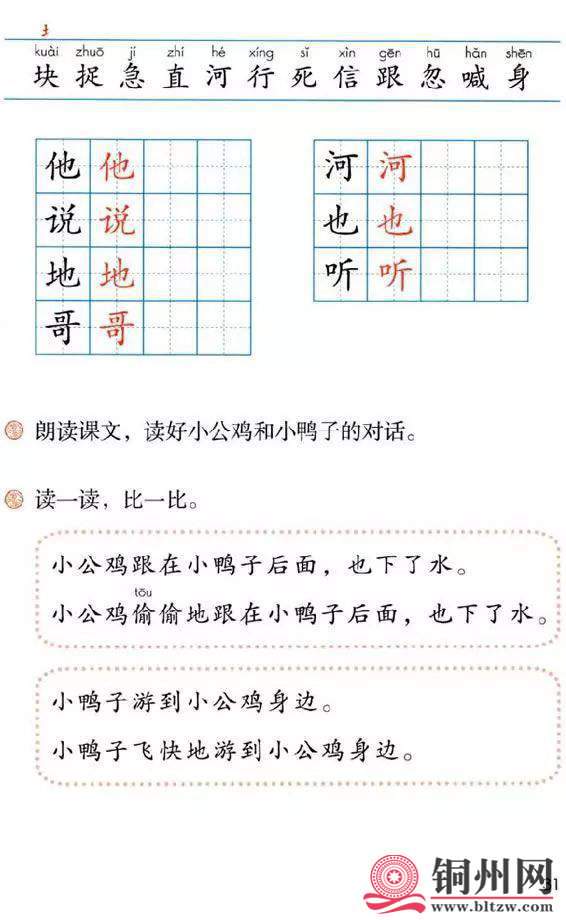 扌
kuài zhuō jí zhí hé xíng sǐ xìn gēn hū hǎn shēn
块 捉 急 直 河 行 死 信 跟 忽 喊 身
他 他
说 说
地 地
哥 哥
河 河
也 也
听 听
朗读课文，读好小公鸡和小鸭子的对话。
读一读，比一比。
小公鸡跟在小鸭子后面，也下了水。
tōu
小公鸡偷偷地跟在小鸭子后面，也下了水。
小鸭子游到小公鸡身边。
小鸭子飞快地游到小公鸡身边。
31
铜州网
www.bltzw.com